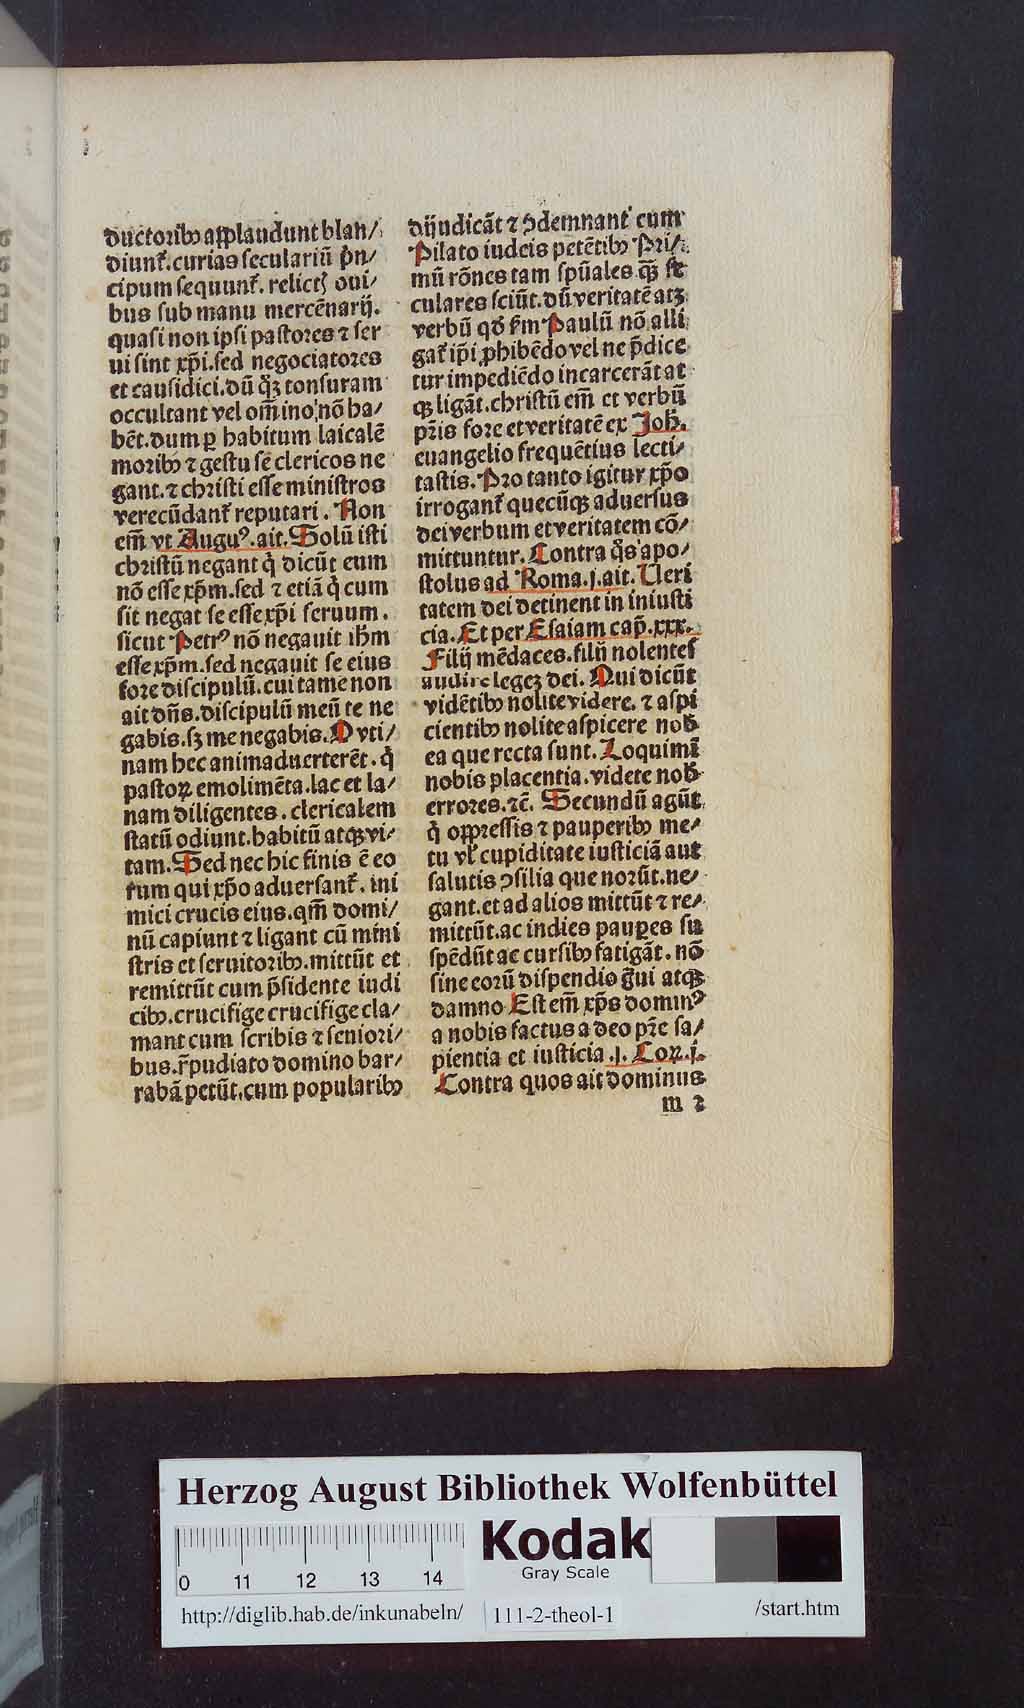 ductoribꝫ applaudunt blan/
diunt᷑.curias seculariū pͥn/
cipum sequunt᷑. relictꝭ oui/
bus sub manu mercēnarij.
quasi non ipsi pastores ⁊ ser
ui sint xp̄i.sed negociatores
et causidici.dū qͣꝫ tonsuram
occultant vel om̄ino nō ha/
bēt.dum ꝑ habitum laicalē
moribꝫ ⁊ gestu sē clericos ne
gant.⁊ christi esse ministros
verecūdant᷑ reputari. Non
em̄ vt Auguꝰ.ait.Solū isti
christū negant qͥ dicūt eum
nō esse xp̄m.sed ⁊ etiā qͥ cum
sit negat se esse xp̄i seruum.
sicut Petrꝰ nō negauit ihm̄
esse xp̄m.sed negauit se eius
fore discipulū.cui tame non
ait dn̄s.discipulū meū te ne
gabis.sꝫ me negabis.O vti/
nam hec animaduerterēt.qͥ
pastoꝝ emolimēta.lac et la/
nam diligentes.clericalem
statū odiunt.habitū atqꝫ vi/
tam.Sed nec hic finis ē eo
rum qui xp̄o aduersant᷑.ini
mici crucis eius.qm̄ domi/
nū capiunt ⁊ ligant cū mini
stris et seruitoribꝫ.mittūt et
remittūt cum p̄sidente iudi
cibꝫ.crucifige crucifige cla/
mant cum scribis ⁊ seniori/
bus.r̄pudiato domino bar/
rabā petūt.cum popularibꝫ
dijudicāt ⁊ ꝯdemnant cum
Pilato iudeis petētibꝫ Pri/
mū rōnes tam spūales qꝫ̄ se
culares sciūt.dū veritatē atqꝫ
verbū qd̓ s̄m Paulū nō alli
gat᷑ ip̄i ꝓhibēdo vel ne p̄dice
tur impediēdo incarcerāt at
qꝫ ligāt.christū em̄ et verbū
pr̄is fore et veritatē ex Joh̄.
euangelio frequētius lecti/
tastis.Pro tanto igitur xp̄o
irrogant᷑ quecūqꝫ aduersus
dei verbum et veritatem cō/
mittuntur. Contra qͦs apo/
stolus ad Roma.j.ait. Ueri
tatem dei detinent in iniusti
cia.Et per Esaiam cap̄.xxx.
Filij mēdaces.filij nolentes
audire legeꝫ dei. Qui dicūt
vidētibꝫ nolite videre. ⁊ aspi
cientibꝫ nolite aspicere nob̄
ea que recta sunt. Loquimī
nobis placentia.videte nob̄
errores.⁊c̄. Secundū agūt
qͥ oppressis ⁊ pauperibꝫ me/
tu vl̓ cupiditate iusticiā aut
salutis ꝯsilia que norūt.ne/
gant.et ad alios mittūt ⁊ re/
mittūt.ac indies pauꝑes su
spēdūt ac cursibꝫ fatigāt.nō
sine eorū dispendio gͣui atqꝫ
damno Est em̄ xp̄s dominꝰ
a nobis factus a deo pr̄e sa/
pientia et iusticia .j. Coꝝ.j.
Contra quos ait dominus
m 2
Herzog August Bibliothek Wolfenbüttel
0 11 12 13 14
Kodak
Gray Scale
http://diglib.hab.de/inkunabeln/ 111-2-theol-1 /start.htm